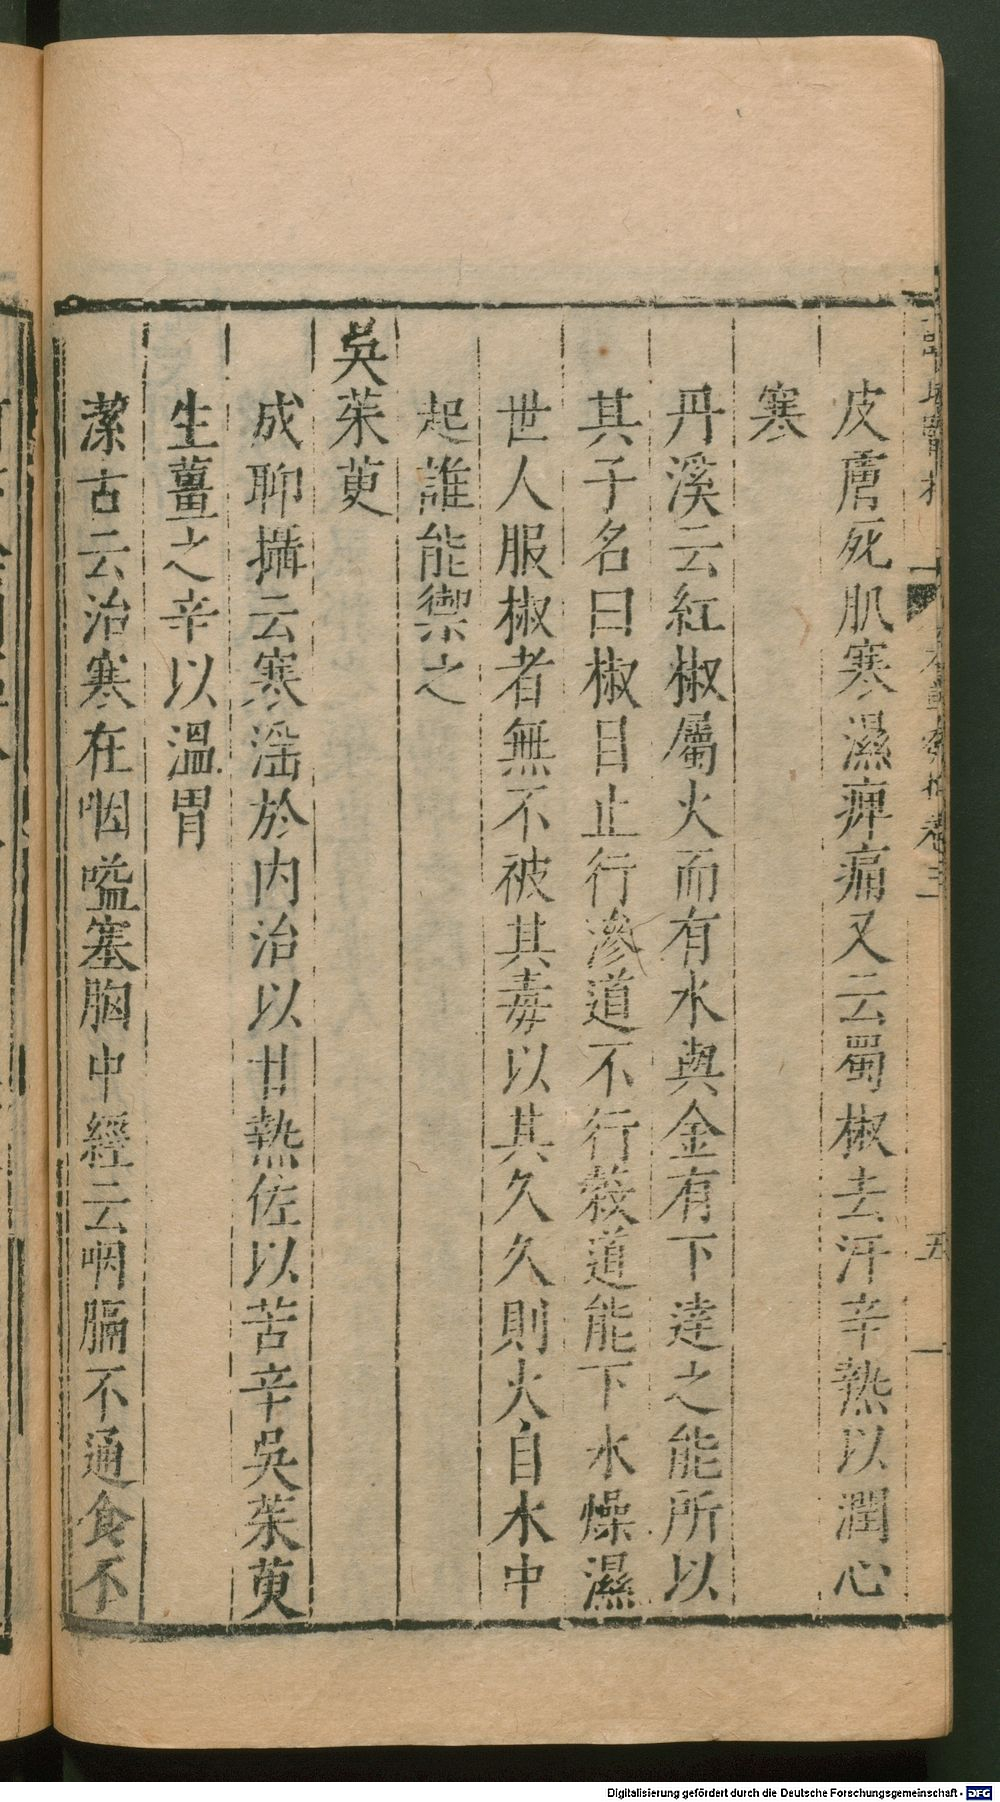 皮膚死肌寒濕痺痛又云蜀椒去汗辛熱以潤心
寒
丹溪云紅椒屬火而有水與金有下達之能所以
其子名曰椒目止行滲道不行穀道能下水燥濕
世人服椒者無不被其毒以其久久則火自水中
起誰能禦之
吳茱萸
成聊攝云寒淫於內治以甘熱佐以苦辛吳茱萸
生薑之辛以溫胃
潔古云治寒在咽嗌塞胸中經云咽膈不通食不
卷三
五
Digitalisierung gefördert durch die Deutsche Forschungsgemeinschaft - DFG